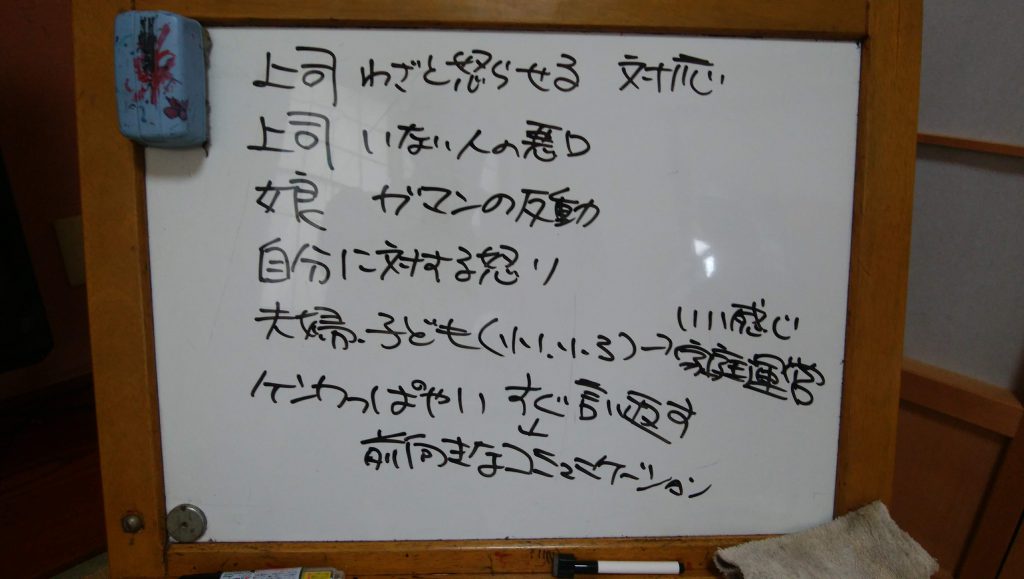 上司 わざと怒らせる 対応
上司 いない人の悪口
娘 ガマンの反動
自分に対する怒り
夫婦、子ども(小、小、小3)→いい感じ
家庭運営
ケンカっぱやい すぐ言い返す
↓
前向きなコミュニケーション